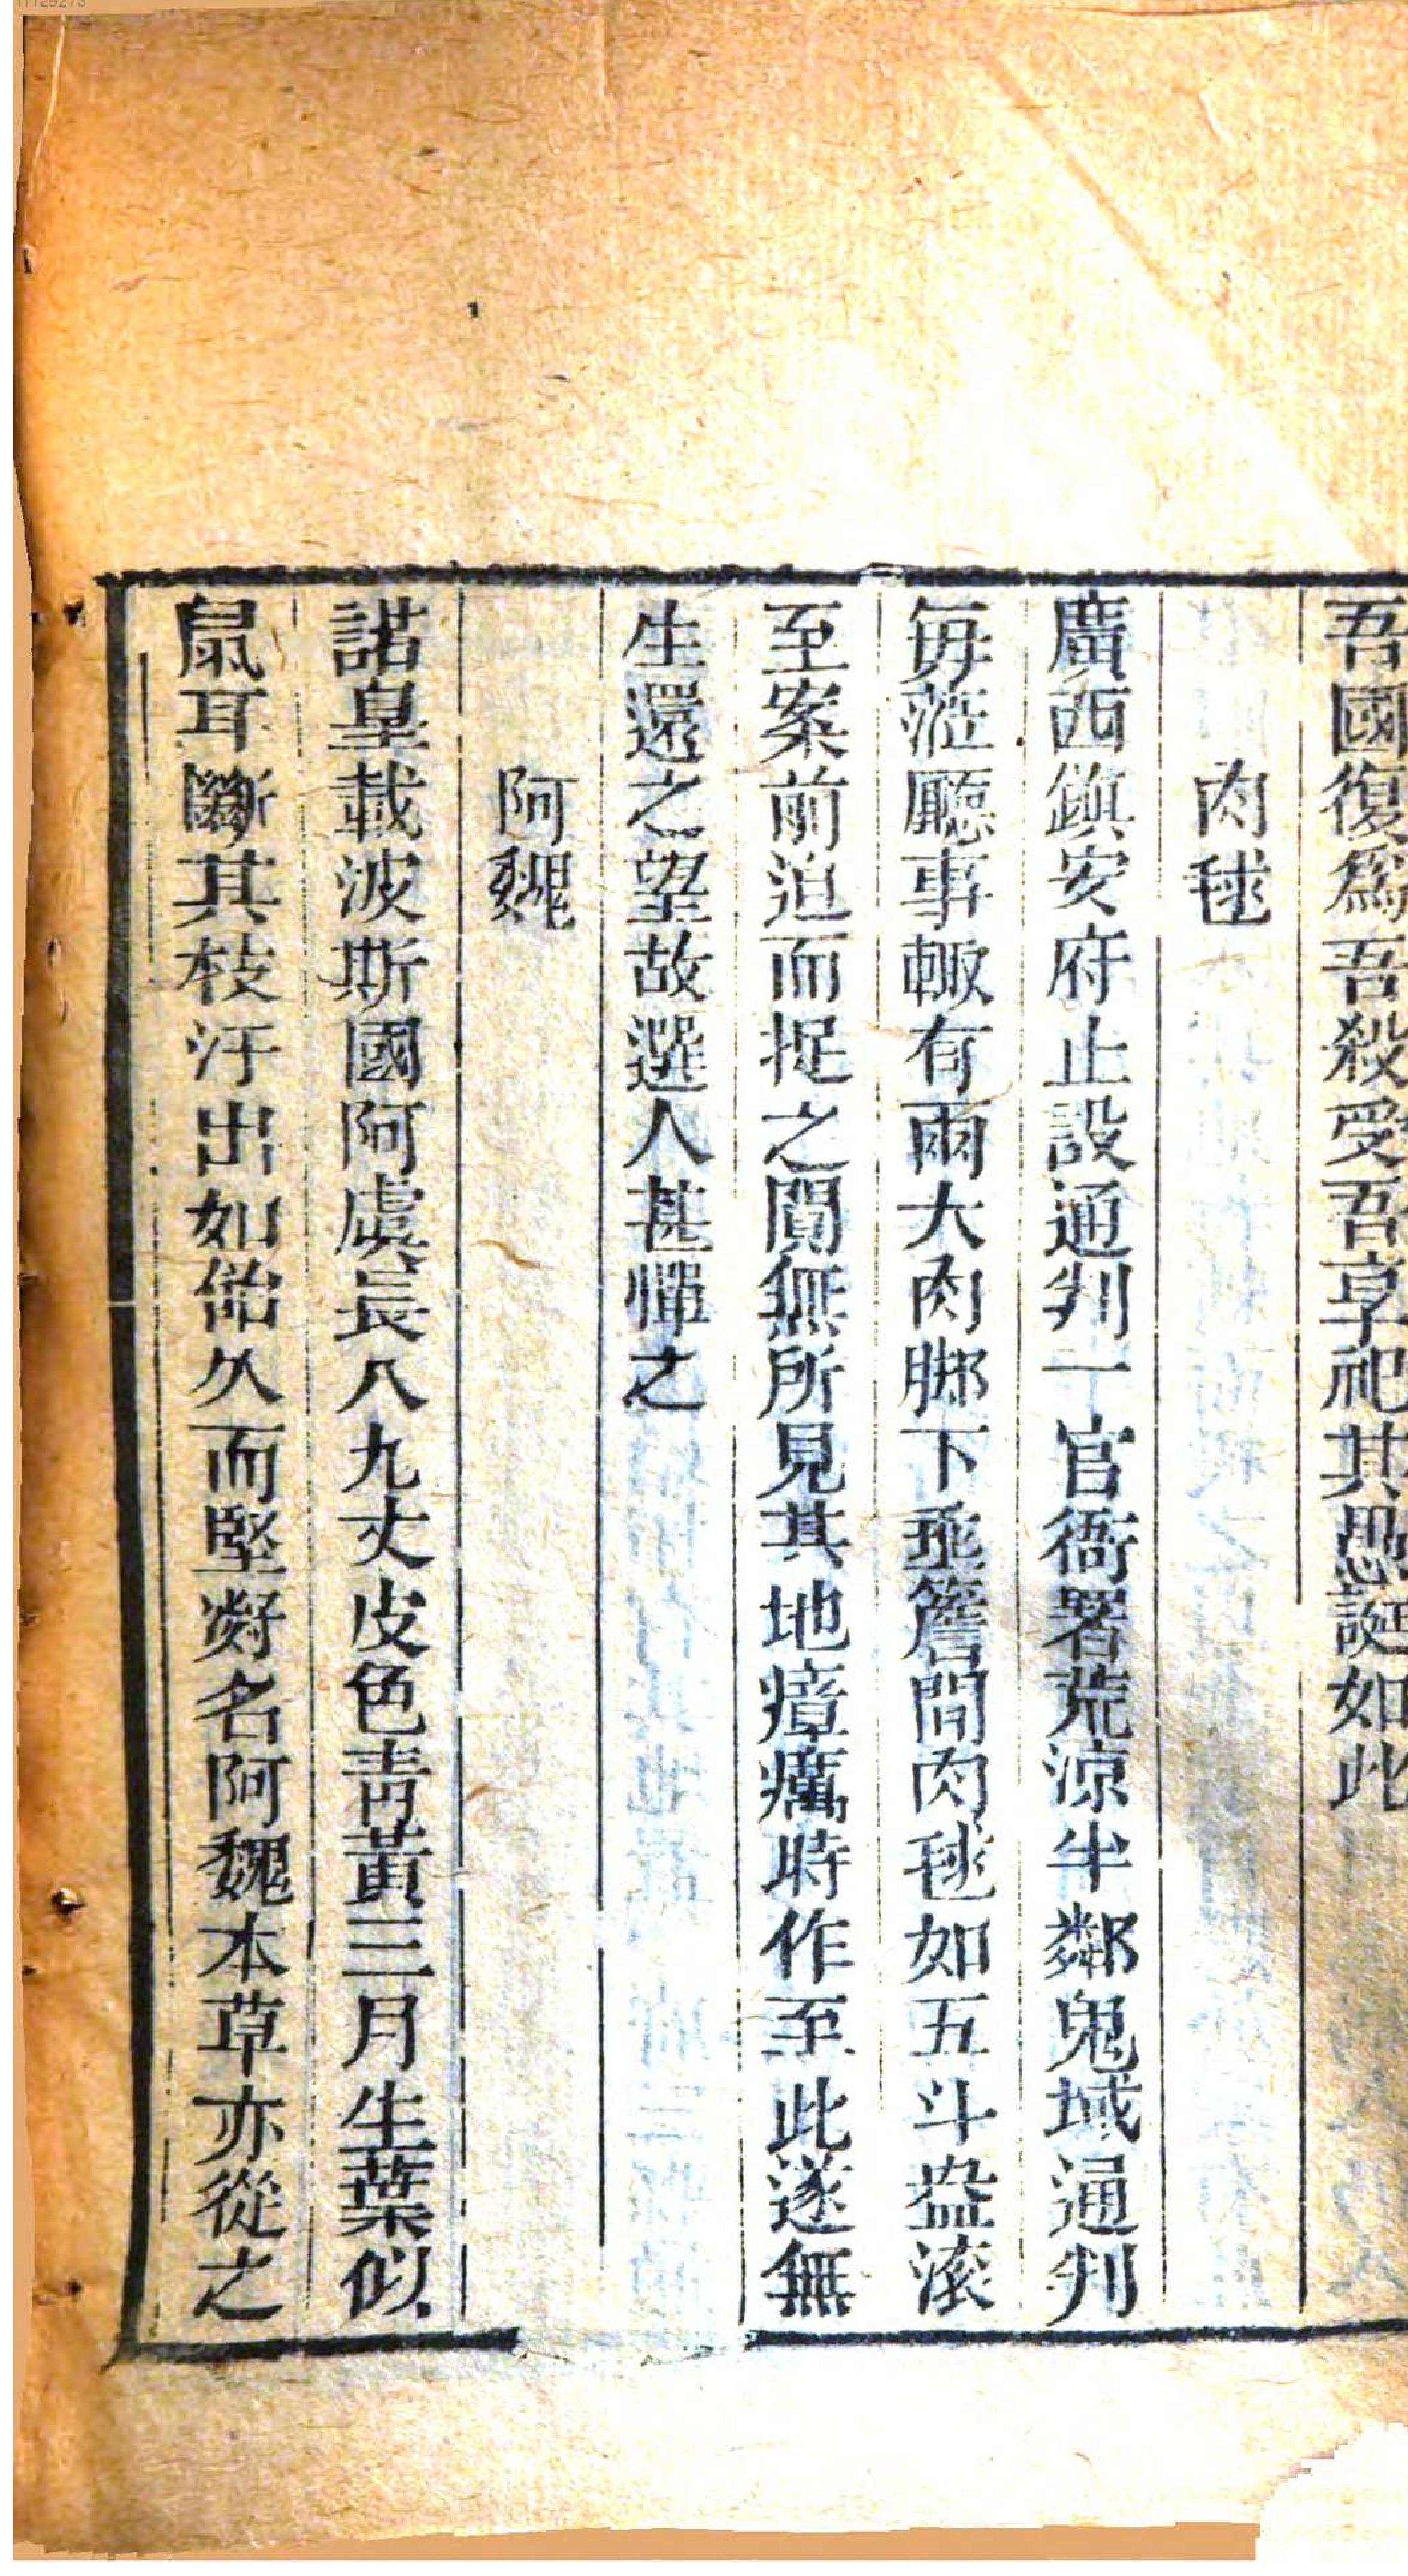 吾國復爲吾殺受吾享祀其愚誕如此
肉毬
廣西鎭安府止設通判一官衙署荒涼半鄰鬼域通判
每蒞廳事輙有兩大肉脚下垂簷間肉毬如五斗盎滚
至案前迫而捉之閴無所見其地瘴癘時作至此遂無
生還之望故選人甚憚之
阿魏
諾皐載波斯國阿虞長八九丈皮色靑黃三月生葉似
鼠耳斷其枝汙出如飴久而堅凝名阿魏本草亦從之